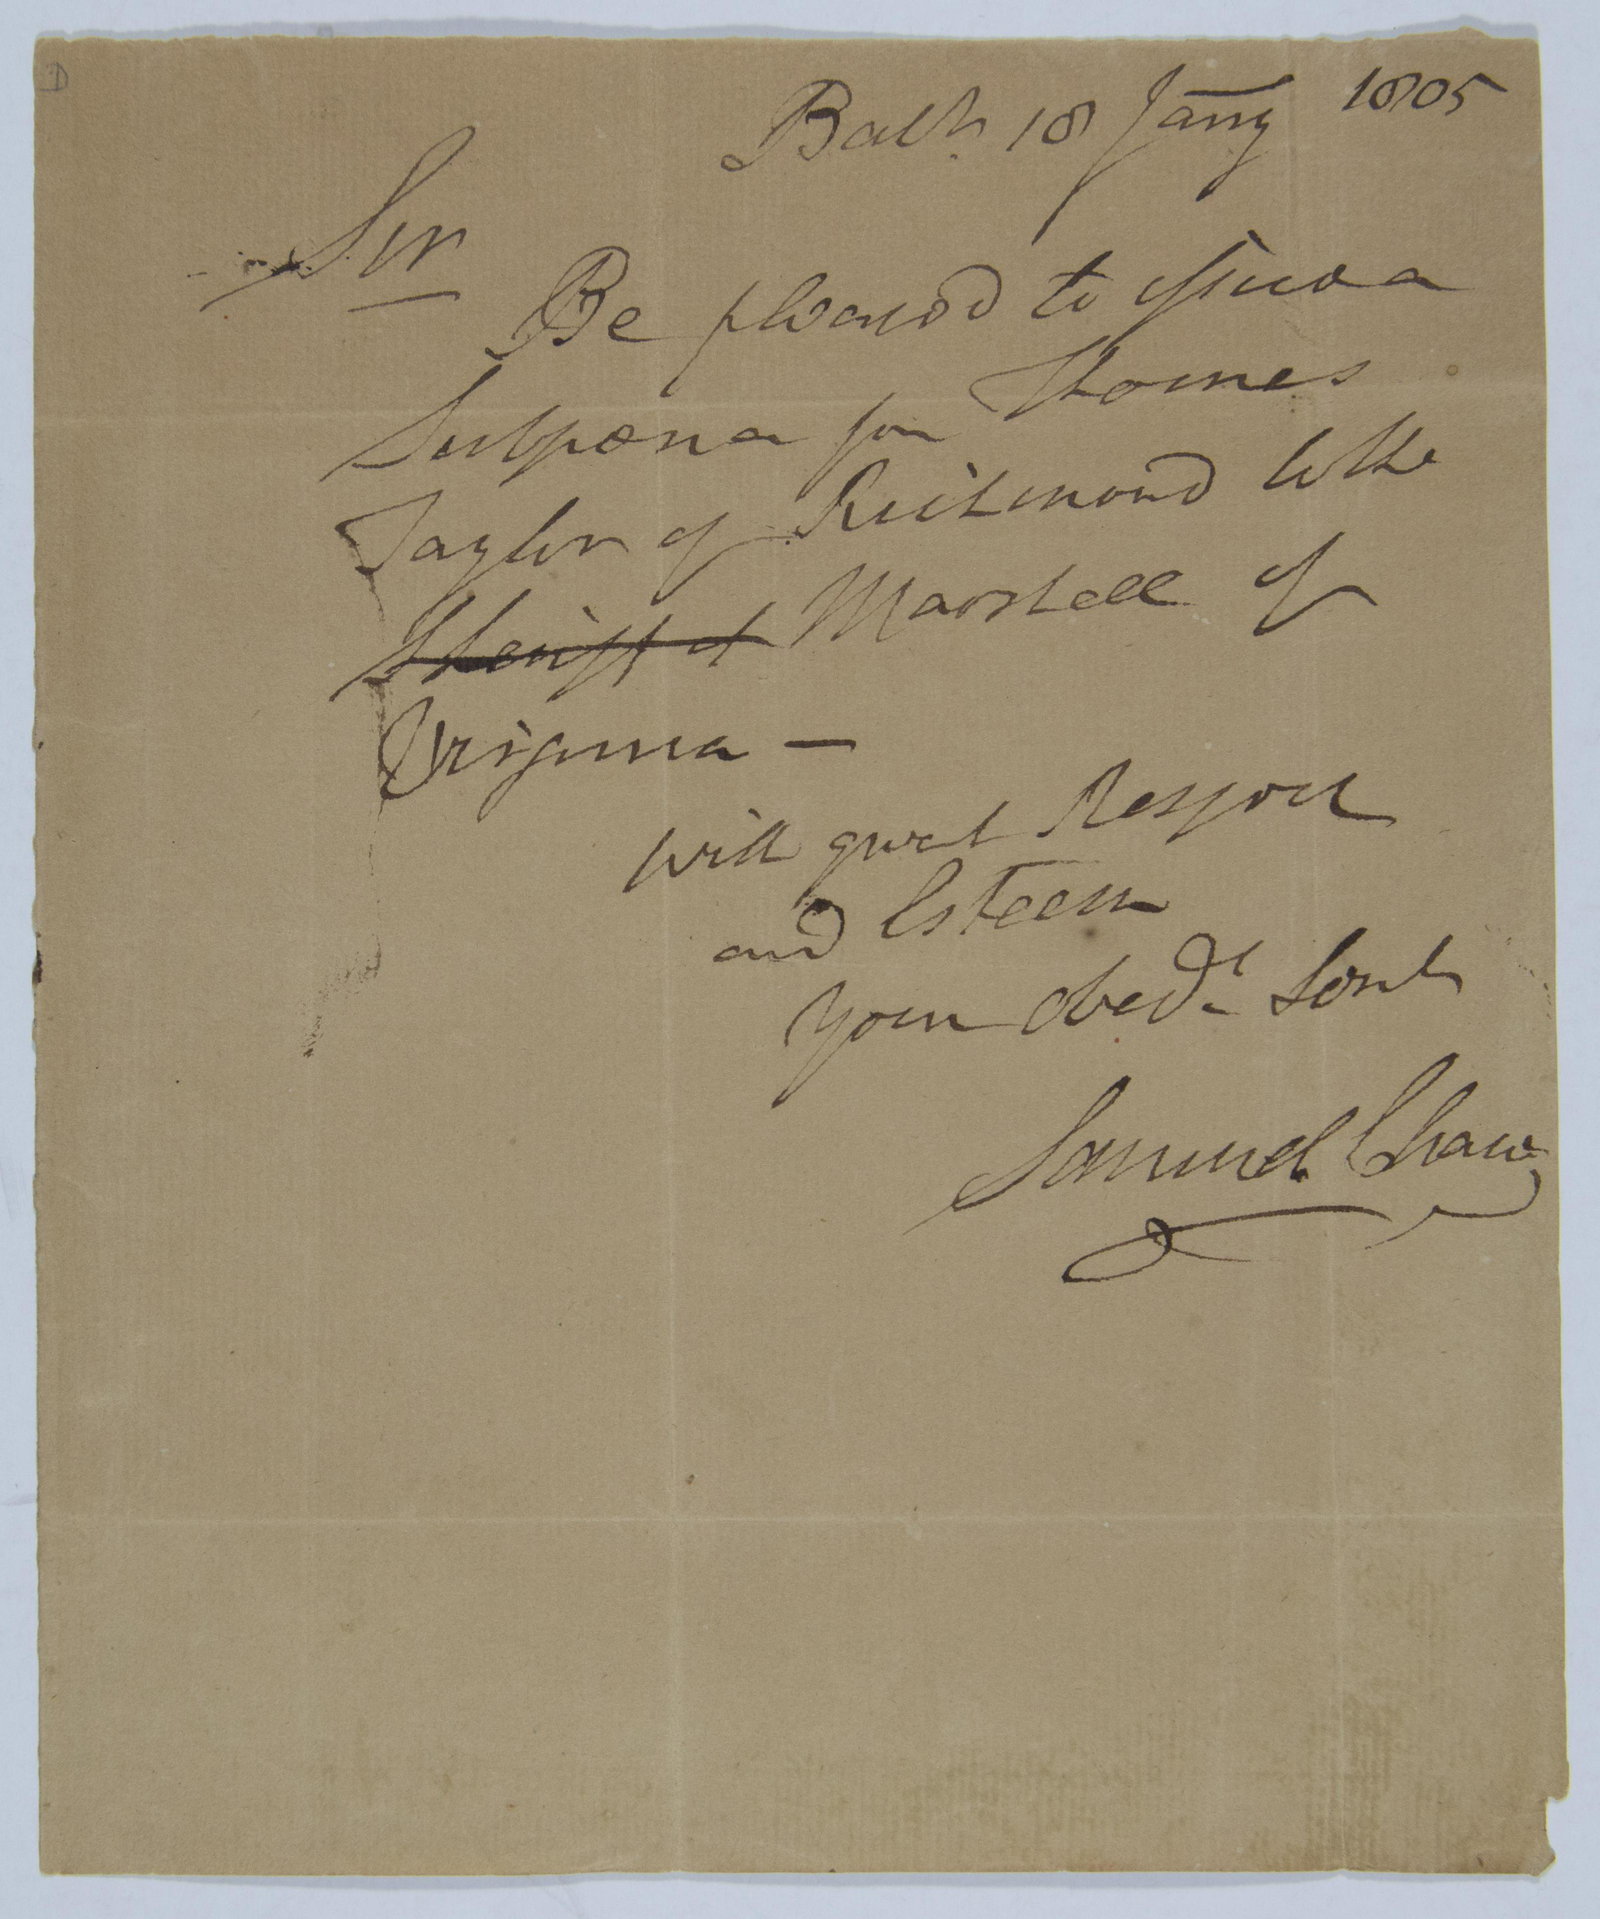 Balt. 18 Jany 1805
Sir
Be pleased to issue a
Subpoena for Thomas
Taylor of Richmond to the
Sheriff of Marshall of
Virginia —
With great Respect
and Esteem
Your obedt. Servt
Samuel Chase